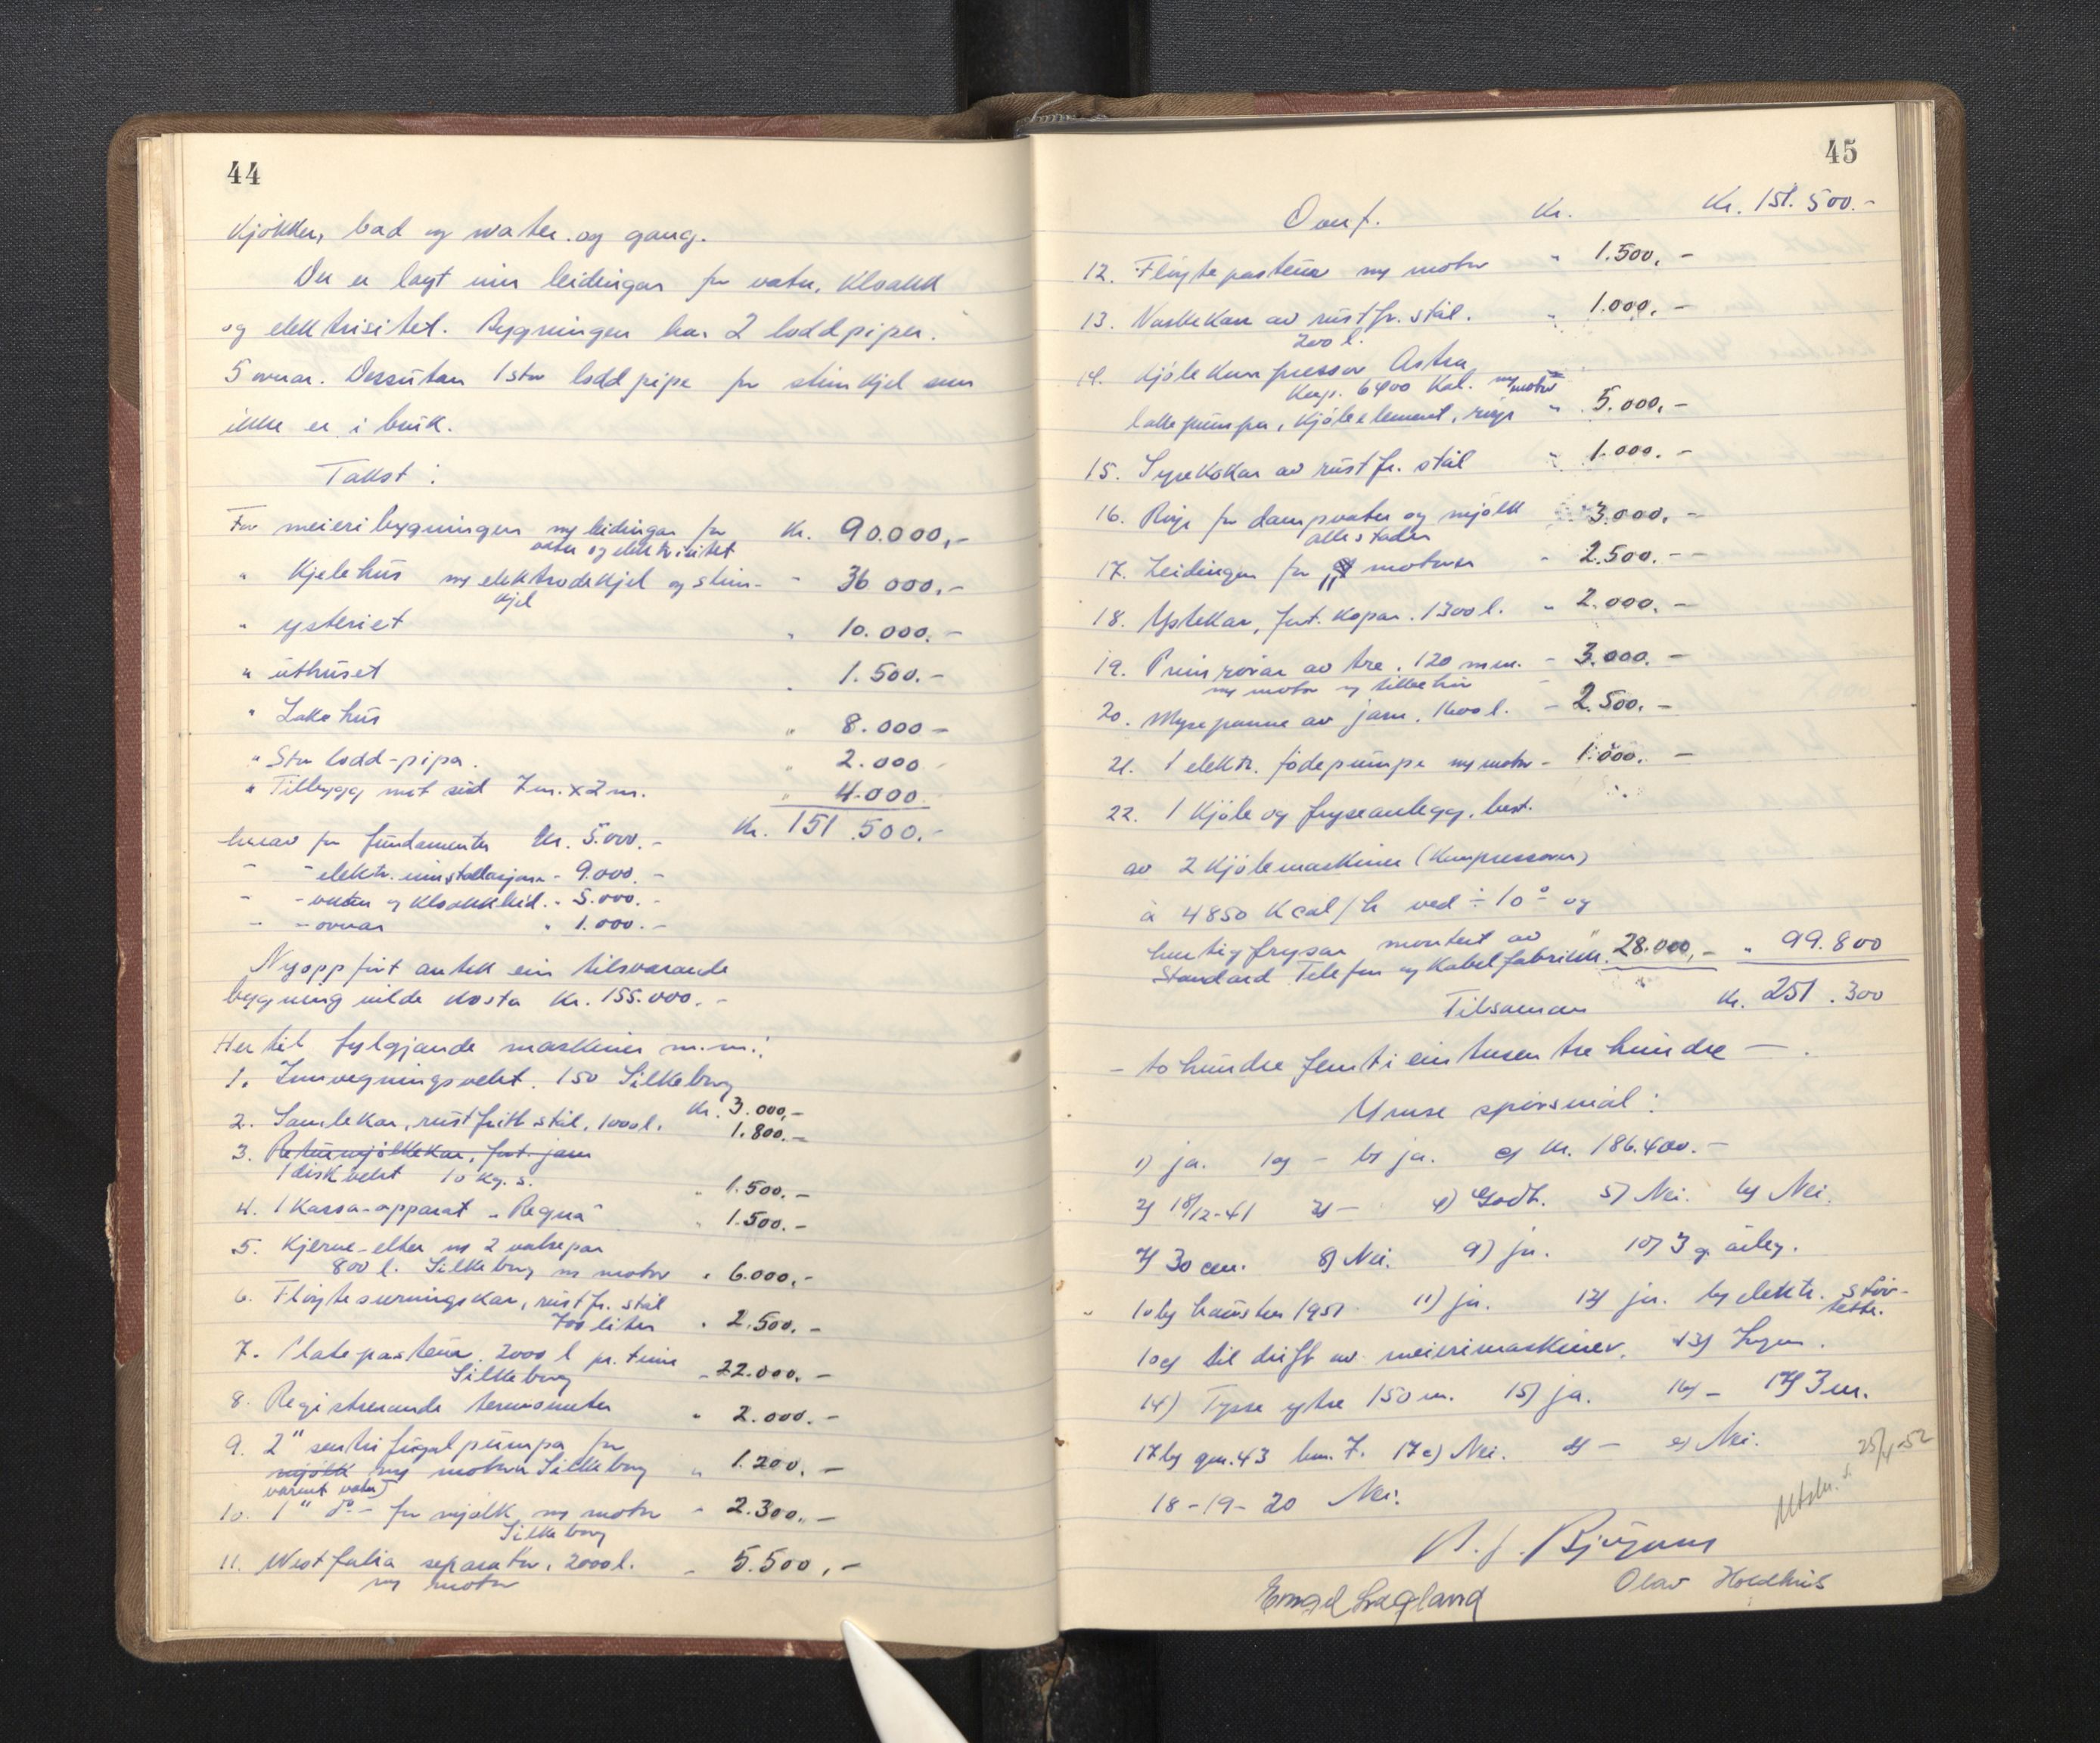 44
Kjökken, bad og water og gang.
Der er lagt inn leidingar for vatn, kloakk
og elektrisitet. Bygningen har 2 loddpiper.
5 omnar. Dessutan 1 stor loddpipe for stimkjel som
ikke er i bruk.
Takst:
For meieribygningen og leidingar for Kr. 90.000,-
vatn og elektrisitet
" Kjelehus og elektrodekjel og stim- " 36 000,-
kjel
" ysteriet " 10.000.-
" uthuset " 1.500.-
" Lakehus " 8.000 -
" Stor lodd-pipa. " 2.000
" Tilbygg mot sud 7m. x 2m. " 4.000.
Kr. 151.500.-
herav for fundamenter Kr. 5.000.-
" - elektr. innstallasjon - 9.000.-
- - vatn og kloakkleid. - 5.000.-
- - ovnar " 1.000.-
Nyoppfört antek ein tilsvarande
bygning vilde kosta Kr. 155.000.-
Her til fylgjande maskiner m.m.:
1. Innvegningsvekt. 150 Silkeborg
Kr. 3.000,-
2. Samlekar, rustfritt stål, 1000 l. 1.800.-
3. Returmjölkekar, fort. jarn
1 diskvekt 10 kg. s. " 1.500.-
4. 1 Kassa-apparat "Regna" " 1.500.-
5. Kjerne-elter m 2 valsepar
800 l. Silkeborg m motor " 6.000,-
6. Flöytesyrningskar, rustfr. stål
700 liter " 2.500,-
7. Platepasteur. 2000 l pr. time
Silkeborg - 22.000. -
8. Registrerande termometer " 2.000.-
9. 2" sentrifugalpumpa for
mjölk og motor Silkeborg " 1.200. -
varmt vatn
10. 1" do - for mjölk m motor " 2.300. -
Silkeborg
11. Westfalia separator. 2000 l. - 5.500,-
m motor
45
Overf. Kr. Kr. 151.500.-
12. Flöytepasteur m motor " 1.500.-
13. Vaskekar av rustfr. stål. " 1.000.-
200 l.
14. Kjölekompressor Astra
Kap. 6400 Kal. m motor
lakepumpa, kjöleelement, röyr " 5.000.-
15. Syrekokar av rustfr. stål " 1.000.-
16. Röyr for damp vatn og mjölk 3.000,-
alle stader
17. Leidingar for 11 motorer - 2.500.-
18. Ystekar, fort. kopar. 1300 l. " 2.000.-
19. Primrörar av tre. 120 mm. - 3.000.-
m motor og tilbehör
20. Mysepanne av jarn. 1600 l. - 2.500.-
21. 1 elektr. födepumpe m motor - 1.000.-
22. 1 Kjöle og fryseanlegg, best.
av 2 Kjölemaskiner (Kompressorer)
à 4850 Kcal/h ved ÷ 10° og
hurtigfrysar montert av
Standard Telefon og Kabelfabrikk. " 28.000,- " 99.800
Tilsaman Kr. 251.300
- to hundre femti ein tusen tre hundre -.
Ymse spörsmål:
1) ja. 1a) - b) ja. c) Kr. 186.400.-
2) 18/12-41 3) - 4) Godt. 5) Nei. 6) Nei.
7) 30 cm. 8) Nei. 9) ja. 10) 3 g. årleg.
10b) hausten 1951. 11) ja. 12) ja. b) elektr. støv-
tette.
10c) til drift av meierimaskiner. 13) Ingen.
14) Tysse ytre 150 m. 15) ja. 16) - 17) 3 m.
17b) gnr. 43 bnr. 7. 17c) Nei. d) - e) Nei.
18-19-20 Nei.
Utskr. s. 25/1-52
Olav Holdhus